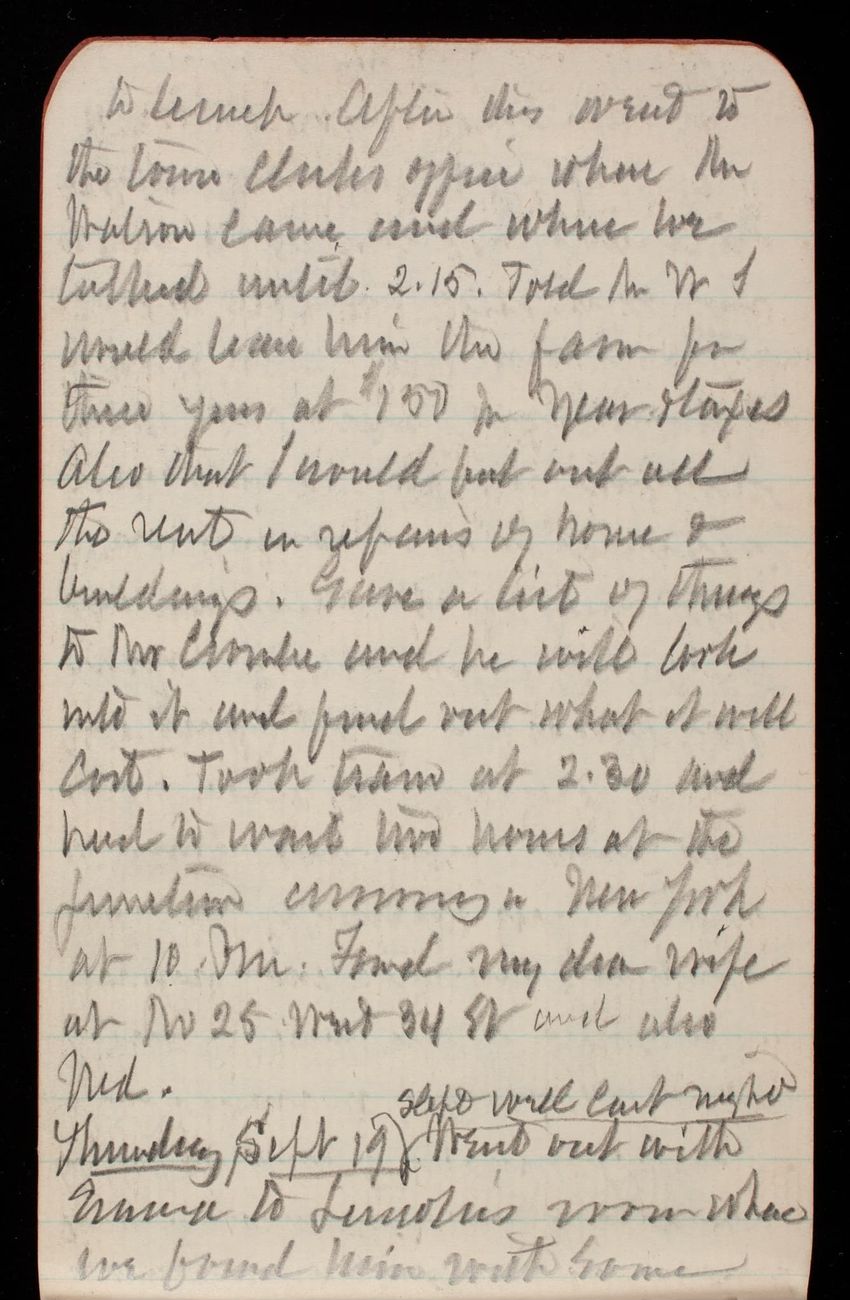 to lunch. After this went to
the town Clerks office where Mr
Watson came, and where we
talked until 2.15. Told Mr W I
would lease him the farm for
three years at $150 per year & taxes
Also that I would put out all
the rent in repairs of house &
buildings. Gave a list of things
to Mr Crombie and he will look
into it and find out what it will
cost. Took train at 2.30 and
had to wait two hours at the
junction arriving in New York
at 10 P.M. Found my dear wife
at No 25 West 34 St and also
Ned.
slept well last night
Thursday Sept 19 Went out with
Emma to room where
we found him with some